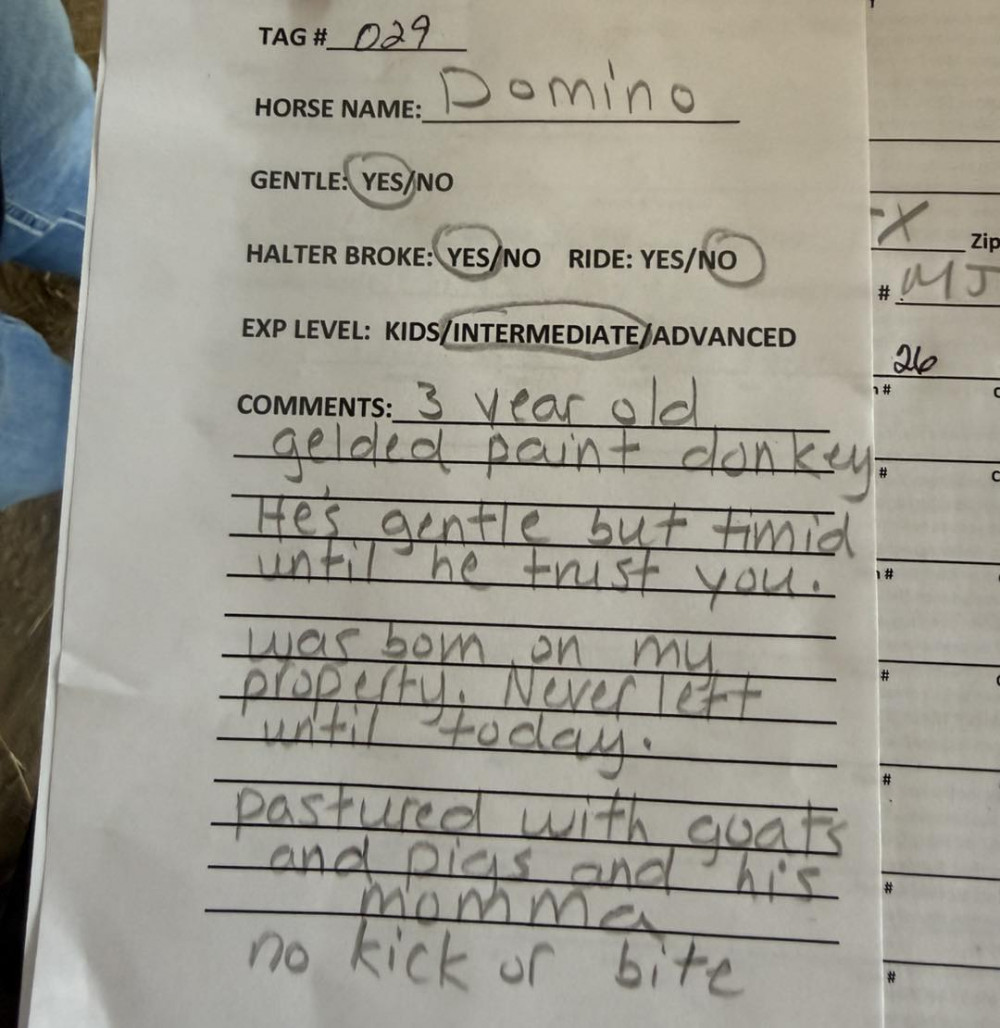 TAG # 029
HORSE NAME: Domino
GENTLE: YES/NO
HALTER BROKE: YES/NO RIDE: YES/NO
EXP LEVEL: KIDS/INTERMEDIATE/ADVANCED
COMMENTS: 3 year old
gelded paint donkey
He's gentle but timid
until he trust you.
was born on my
property. Never left
until today.
pastured with goats
and pigs and his
momma
no kick or bite
Zip
# MJ
26
#
#
#
#
#
#
#